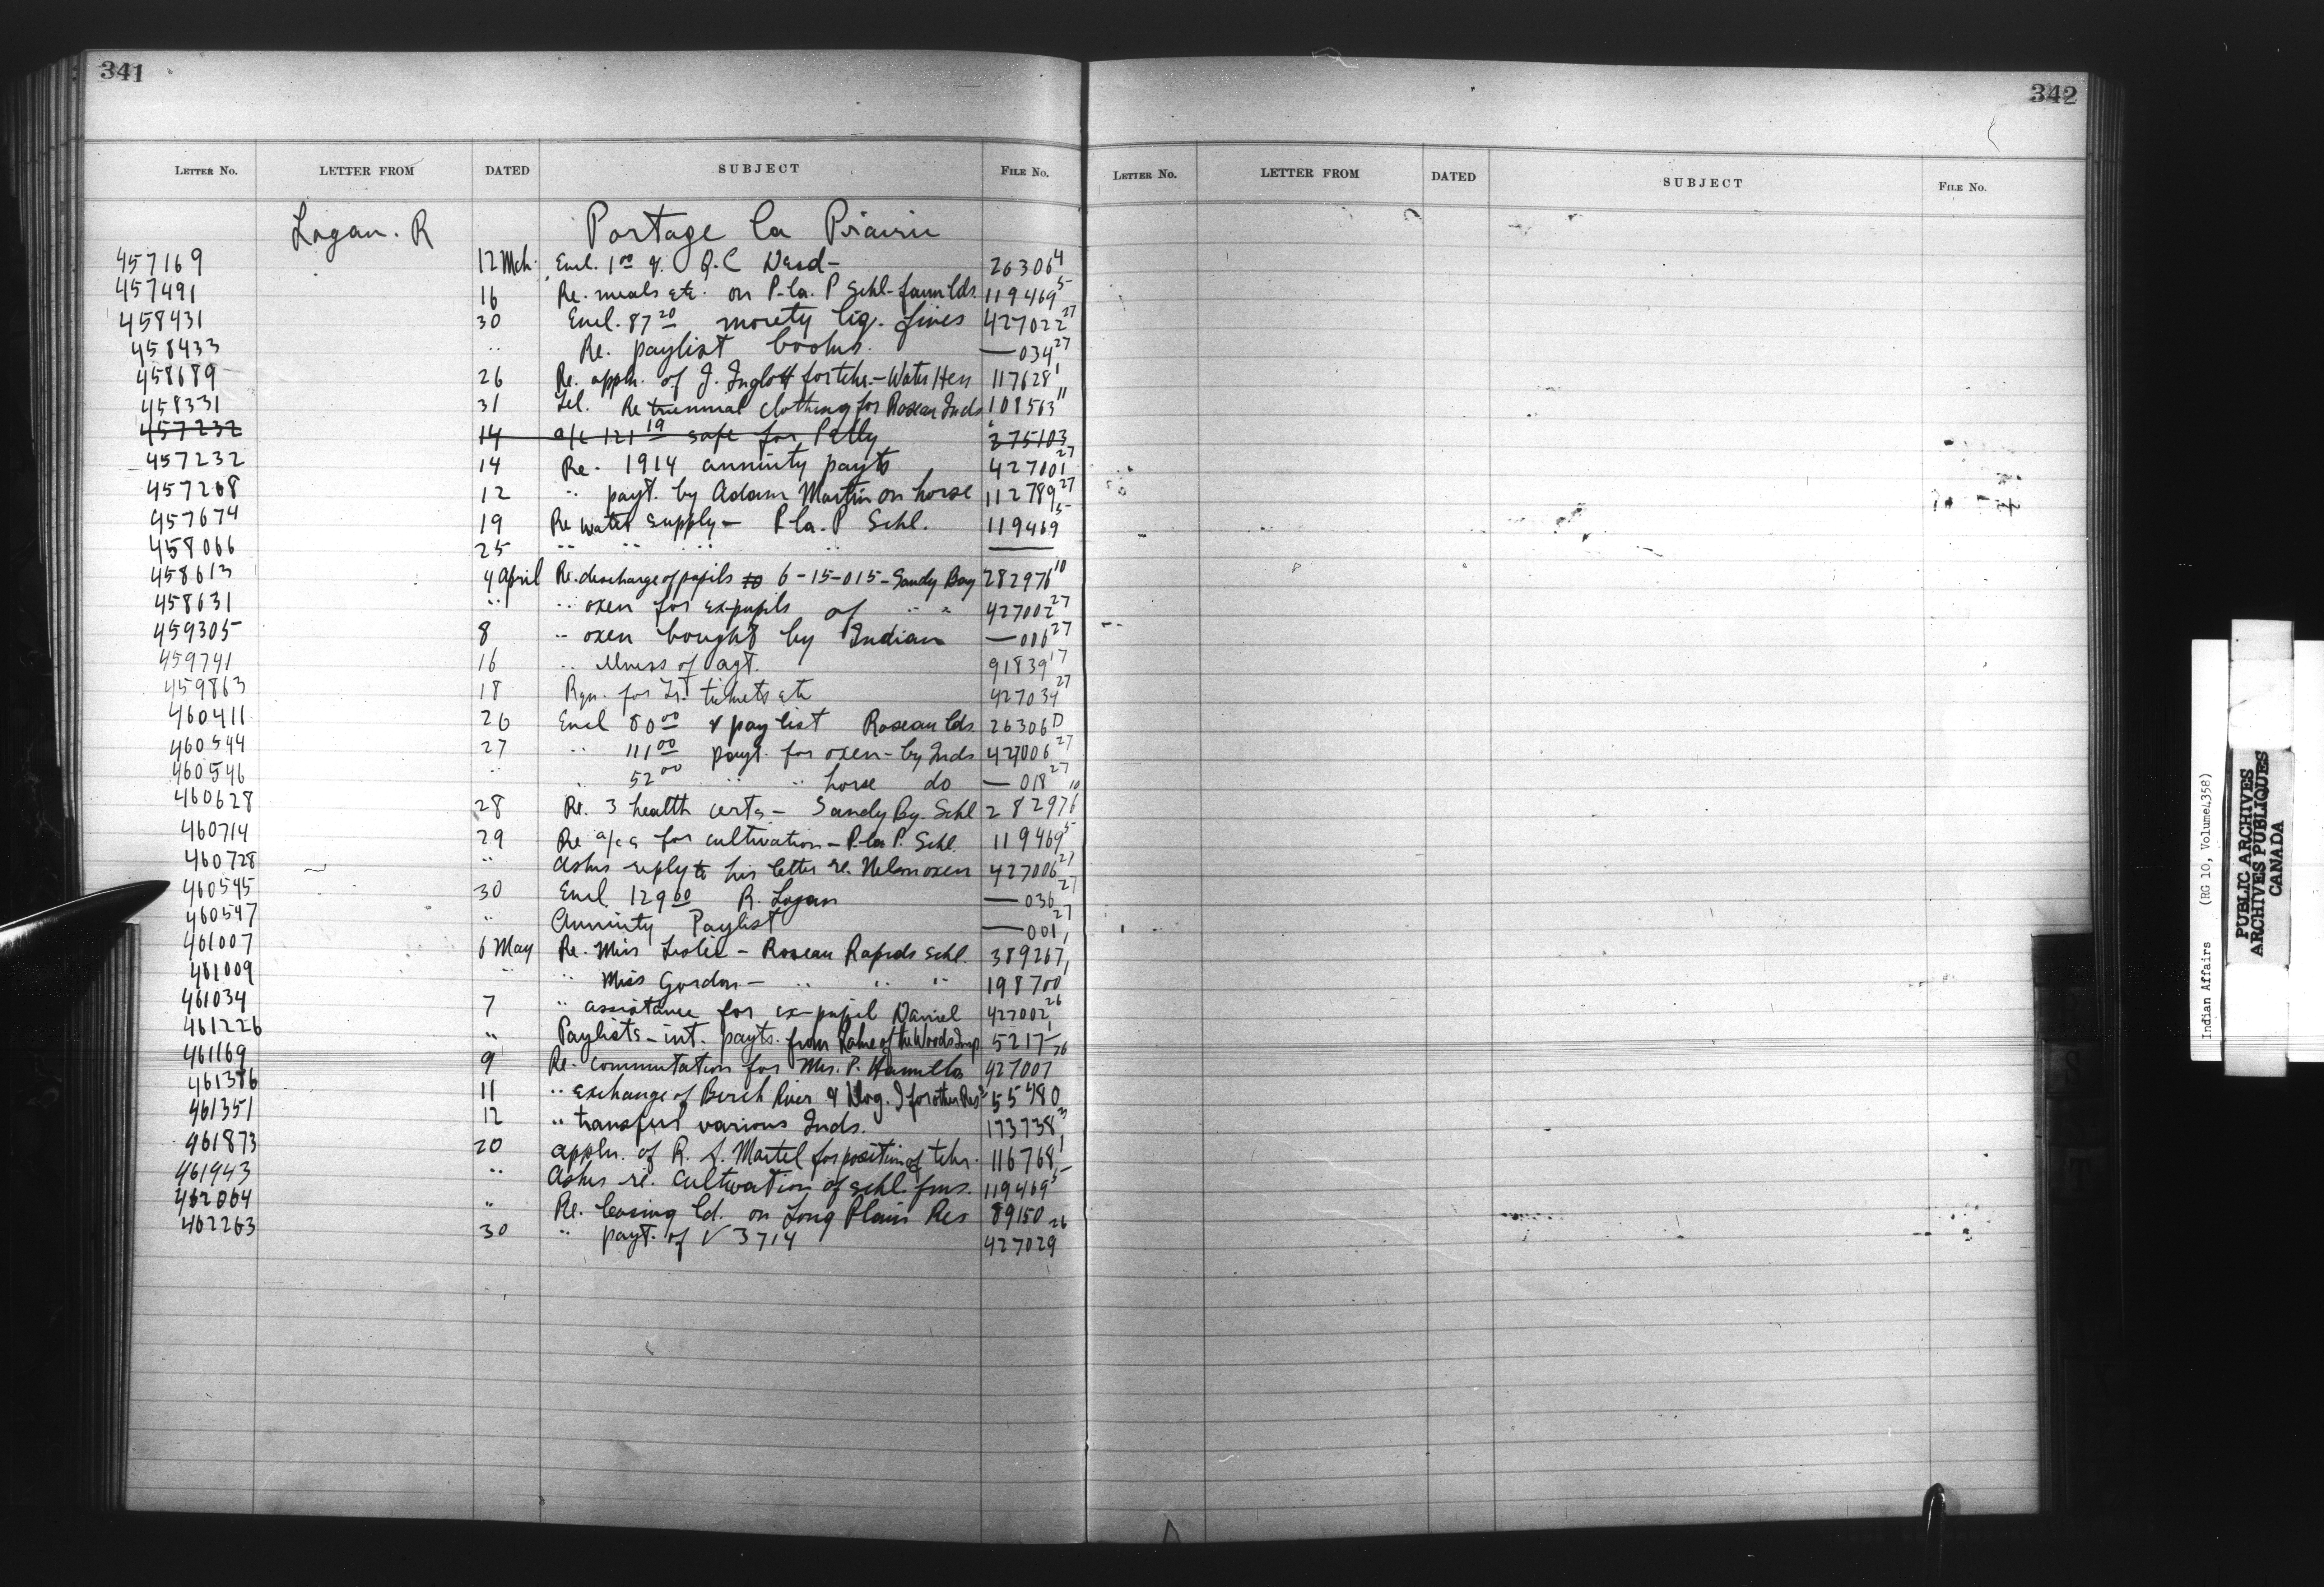 341
LETTER No. LETTER FROM DATED SUBJECT FILE No.
Logan. R Portage la Prairie
457169 12 Mch. Encl. 1 00 Q.C 26306 4
457491 16 Re. meals etc. on P. la. P Schl- farm lds. 119469 5
458431 30 Encl. 87 20 moiety liq. fines 427022 27
458433 " Re. paylist books. — 034 27
458689 26 Re. appln. of J. for tchr.- Water Hen 117628 1
458331 31 Tel. Re triennial clothing for Roseau Inds 108563 11
457232 14 a/c 121 19 safe for Pelly 275103
457232 14 Re. 1914 annuity payts 427001 27
457268 12 " payt. by Adam Martin on horse 112789 27
457674 19 Re water supply - P la. P Schl. 119469 5
458066 25 " " " " —
458613 4 April Re. discharge of pupils to 6-15-015- Sandy Bay 282976 10
458631 " " oxen for ex-pupils of " " 427002 27
459305 8 " oxen bought by Indian — 006 27
459741 16 " illness of agt. 91839 17
459863 18 Rqn. for Tr. tickets etc 427034 27
460411 26 Encl 80 00 & pay list Roseau lds. 26306 D
460544 27 " 111 00 payt. for oxen - by Inds 427006 27
460546 " " 52 00 " " horse do — 018 27
460628 28 Re. 3 health certs - Sandy By. Schl 282976 10
460714 29 Re a/cs for cultivation - P. la P. Schl. 119469 5
460728 " Asks reply to his letter re. Nelson oxen 427006 27
460545 30 Encl 129 60 R. Logan — 036 27
460547 " Annuity Paylist — 001 27
461007 6 May Re. Miss Leslie - Roseau Rapids Schl. 389267 1
461009 " " Miss Gordon - " " " 198700 1
461034 7 " assistance for ex-pupil Daniel 427002 26
461226 " Paylists - int. payts. from Lake of the Woods Insp 5217 1
461169 9 Re. commutation for Mrs. P. Hamilton 427007 26
461386 11 " exchange of Birch River & for other Res 55480
461351 12 " transfers various Inds. 173738 3
461873 20 appln. of R. S. Martel for position of tchr. 116768 1
461943 " Asks re. cultivation of schl. fms. 119469 5
462064 " Re. leasing ld. on Long Plain Res 89150
462263 30 " payt. of V 3714 427029 26
342
LETTER No. LETTER FROM DATED SUBJECT FILE No.
Indian Affairs (RG 10, Volume 4358)
PUBLIC ARCHIVES
ARCHIVES PUBLIQUES
CANADA